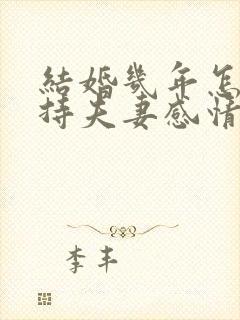 結婚幾年怎
持夫妻感情
李丰